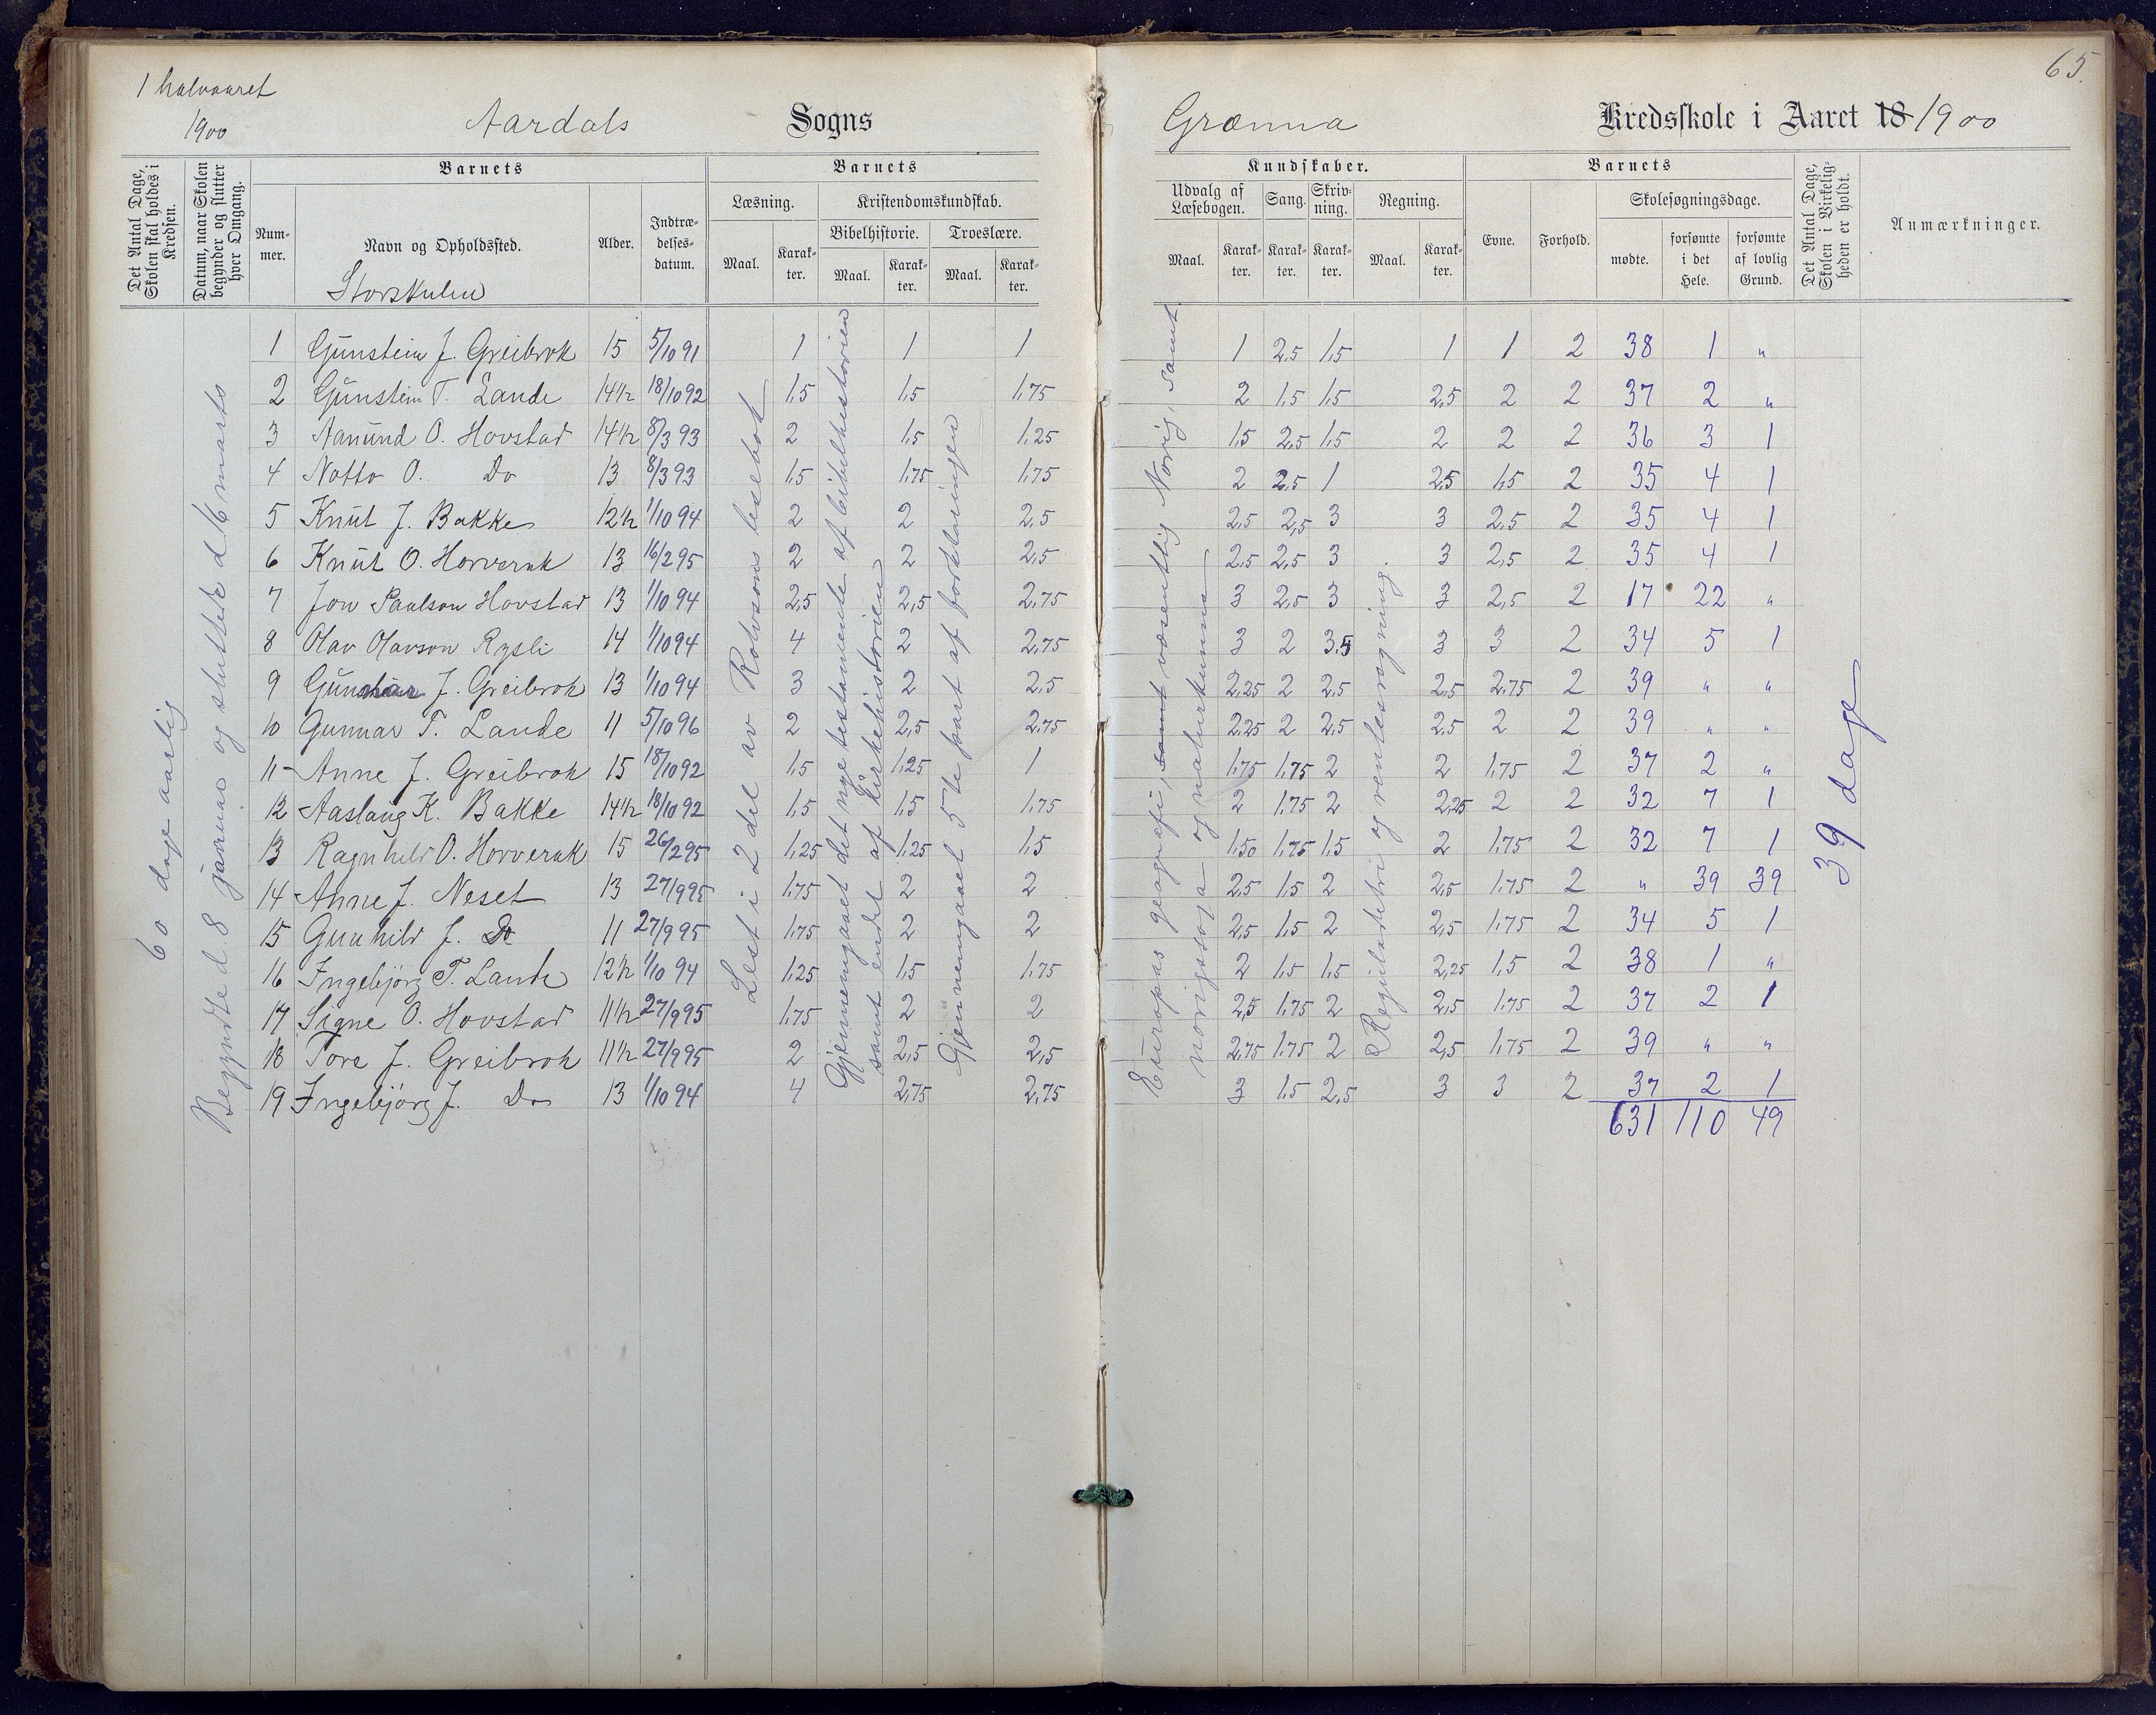 1 halvaaret
1900
Aardals Sogns
Grænna Kredsskole i Aaret 18 1900
65.
Det Antal Dage, Skolen skal holdes i Kredsen.
Datum, naar Skolen begynder og slutter hver Omgang.
Barnets
Nummer.
Navn og Opholdssted.
Storskulen
Alder.
Indtrædelsesdatum.
Barnets
Læsning.
Maal. Karakter.
Kristendomskundskab.
Bibelhistorie. Troeslære.
Maal. Karakter. Maal. Karakter.
Kundskaber.
Udvalg af Læsebogen. Sang. Skrivning. Regning.
Maal. Karakter. Karakter. Karakter. Maal. Karakter.
Barnets
Evne. Forhold. Skolesøgningsdage.
mødte. forsømte i det Hele. forsømte af lovlig Grund.
Det Antal Dage, Skolen i Virkeligheden er holdt.
Anmærkninger.
60 dage aarlig
Begyndte d. 8 januar og sluttede d 16 marts
Lest i 2 del av Rolvsons lesebok
Gjennemgaaet det nye testamente af bibelhistorien
samt endel af kirkehistorien
Gjennemgaaet 5te part af forklaringen
Europas geografi, samt væsentlig Norig, samt
norigssoga og naturkunne
Reguladetri og rentesregning.
39 dage
1 Gunstein J. Greibrok 15 5/10 91 1 1 1 1 2,5 1,5 1 1 2 38 1 "
2 Gunstein T. Lande 14½ 18/10 92 1,5 1,5 1,75 2 1,5 1,5 2,5 2 2 37 2 "
3 Aanund O. Hovstad 14½ 8/3 93 2 1,5 1,25 1,5 2,5 1,5 2 2 2 36 3 1
4 Notto O. Do 13 8/3 93 1,5 1,75 1,75 2 2,5 1 2,5 1,5 2 35 4 1
5 Knut J. Bakke 12½ 1/10 94 2 2 2,5 2,5 2,5 3 3 2,5 2 35 4 1
6 Knut O. Horverak 13 16/2 95 2 2 2,5 2,5 2,5 3 3 2,5 2 35 4 1
7 Jon Paulson Hovstad 13 1/10 94 2,5 2,5 2,75 3 2,5 3 3 2,5 2 17 22 "
8 Olav Olavson Rysli 14 1/10 94 4 2 2,75 3 2 3,5 3 3 2 34 5 1
9 Gunnar J. Greibrok 13 1/10 94 3 2 2,5 2,25 2 2,5 2,5 2,75 2 39 " "
10 Gunnar T. Lande 11 5/10 96 2 2,5 2,75 2,25 2 2,5 2,5 2 2 39 " "
11 Anne J. Greibrok 15 18/10 92 1,5 1,25 1 1,75 1,75 2 2 1,75 2 37 2 "
12 Aaslaug K. Bakke 14½ 18/10 92 1,5 1,5 1,75 2 1,75 2 2,25 2 2 32 7 1
13 Ragnhild O. Horverak 15 26/2 95 1,25 1,25 1,5 1,50 1,75 1,5 2 1,75 2 32 7 1
14 Anne J. Neset 13 27/9 95 1,75 2 2 2,5 1,5 2 2,5 1,75 2 " 39 39
15 Gunhild J. Do 11 27/9 95 1,75 2 2 2,5 1,5 2 2,5 1,75 2 34 5 1
16 Ingebjörg T. Lande 12½ 1/10 94 1,25 1,5 1,75 2 1,5 1,5 2,25 1,5 2 38 1 "
17 Signe O. Hovstad 11½ 27/9 95 1,75 2 2 2,5 1,75 2 2,5 1,75 2 37 2 1
18 Tore J. Greibrok 11½ 27/9 95 2 2,5 2,5 2,75 1,75 2 2,5 1,75 2 39 " "
19 Ingebjörg J. Do 13 1/10 94 4 2,75 2,75 3 1,5 2,5 3 3 2 37 2 1
631 110 49